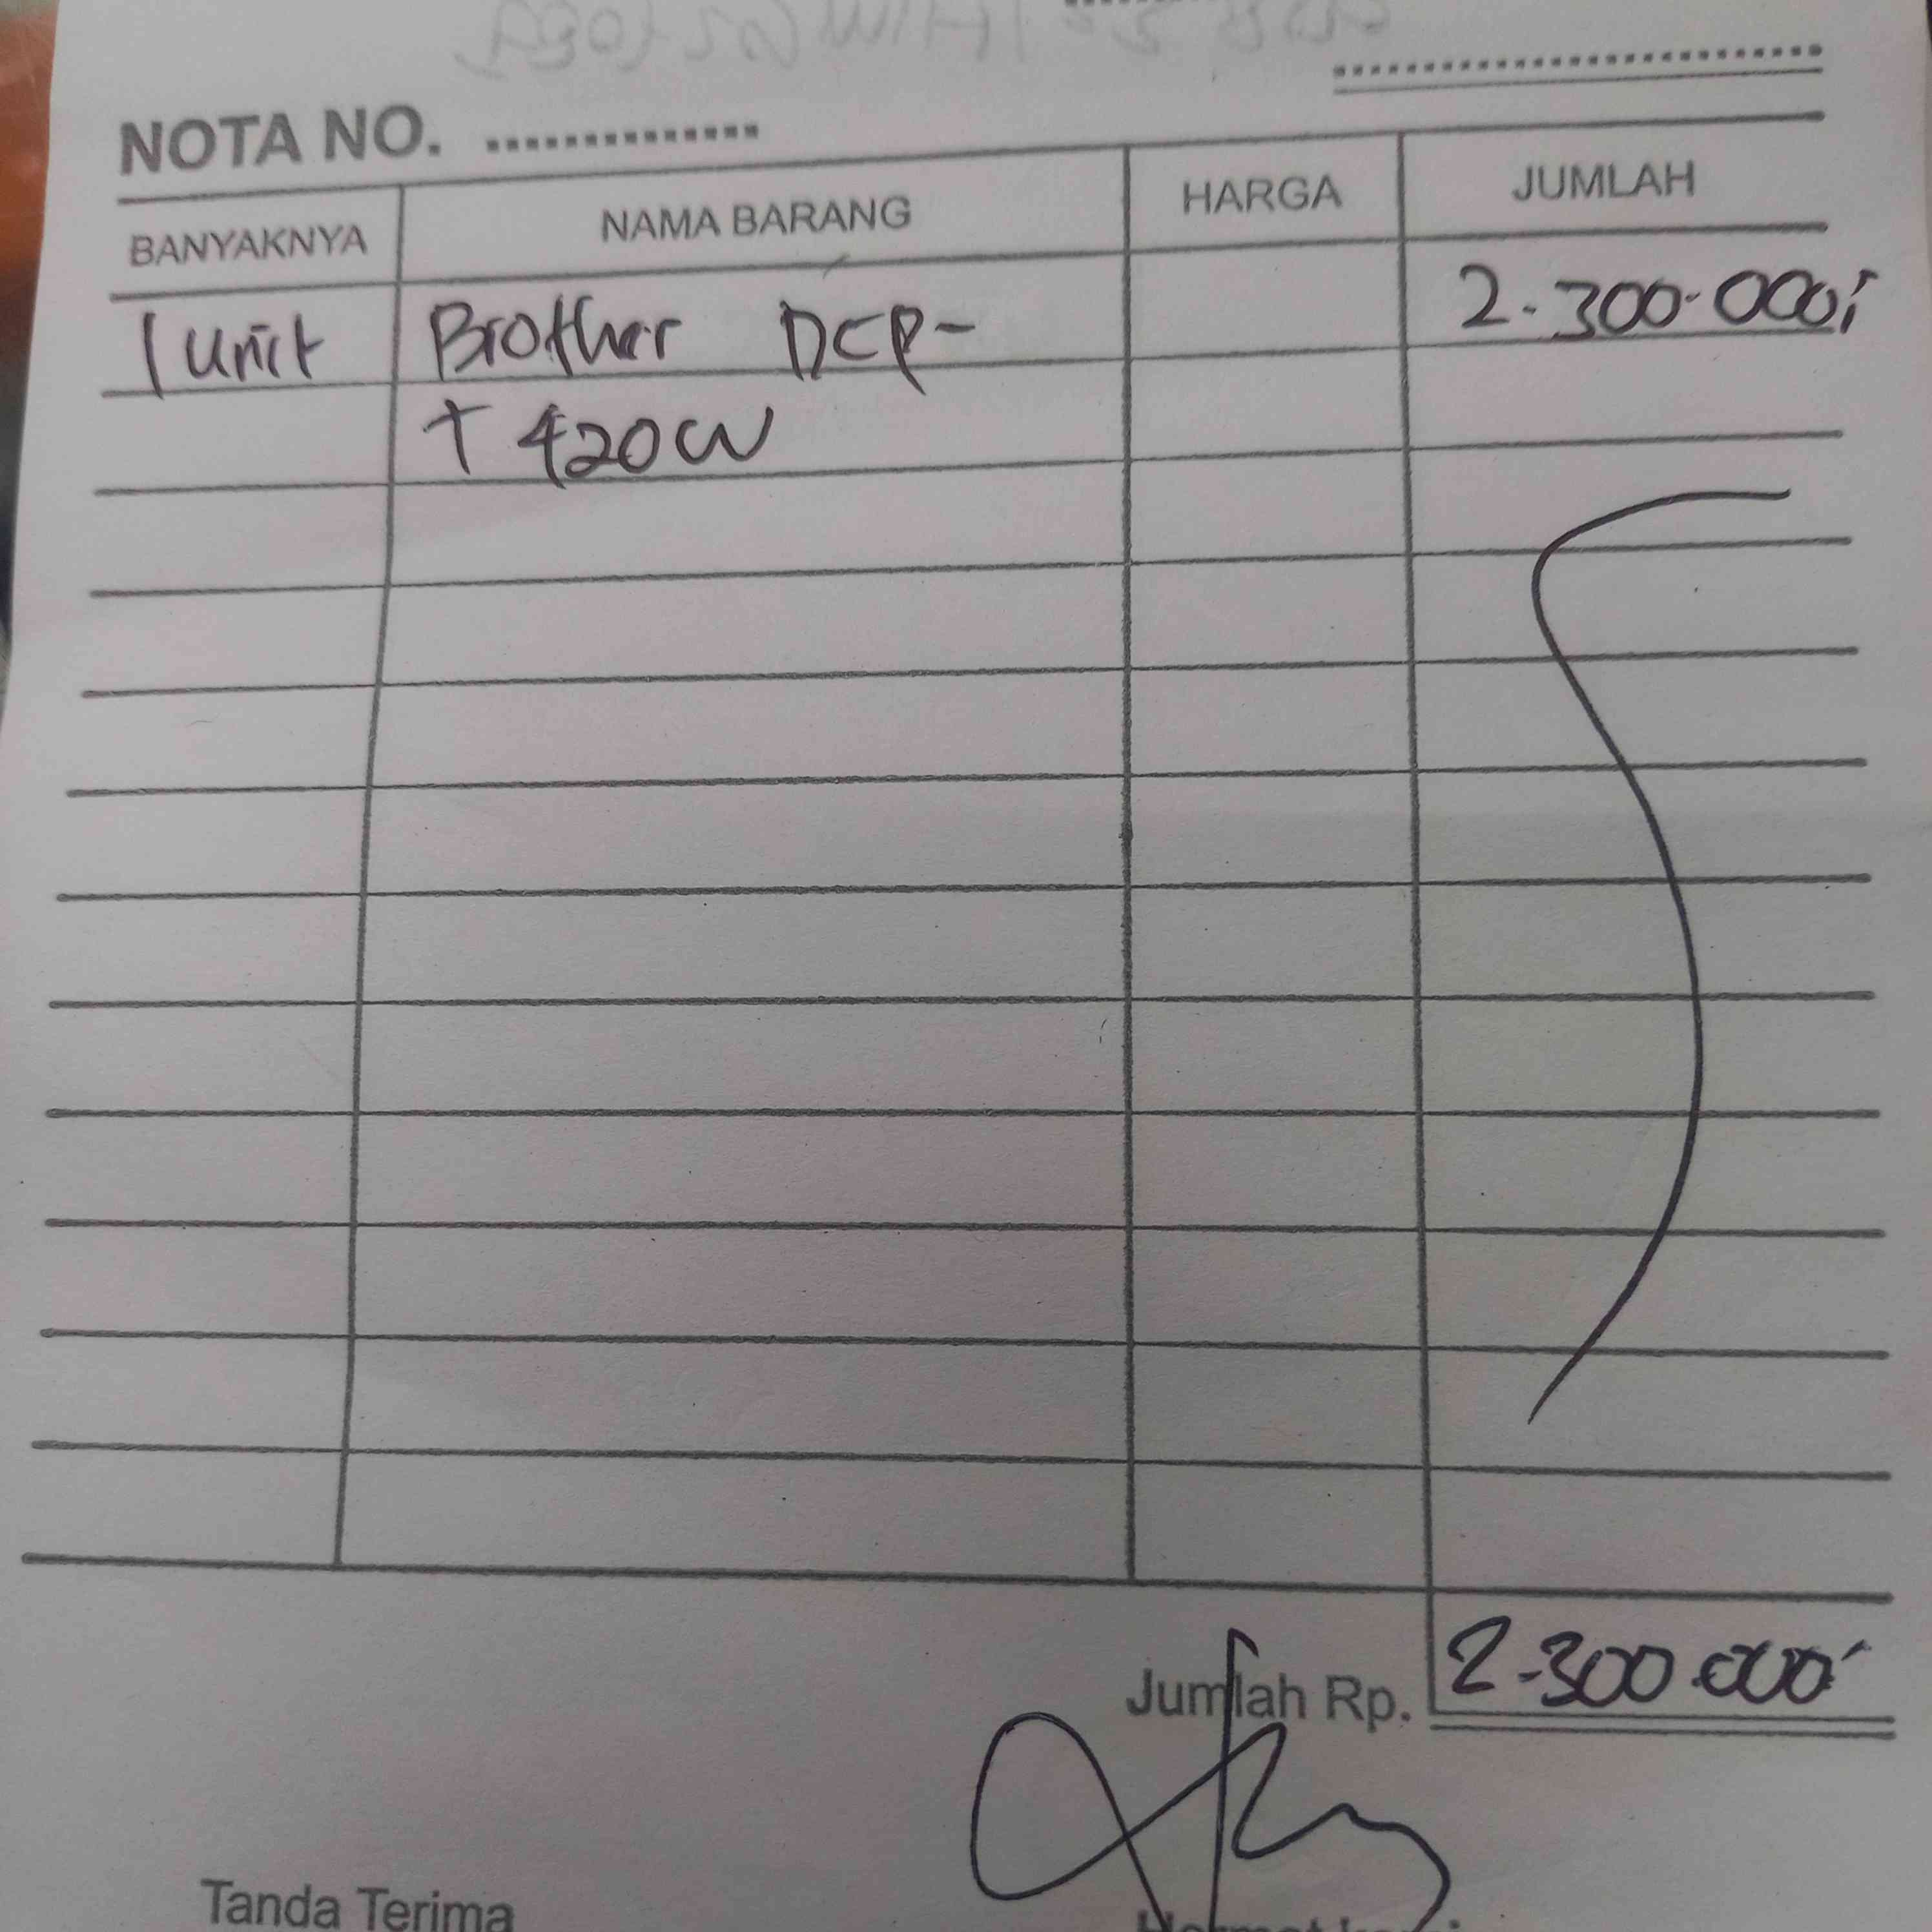 NOTA NO. ..............
BANYAKNYA NAMA BARANG HARGA JUMLAH
1 unit Brother DCP- 2.300.000,
T420W
Jumlah Rp. 2.300.000
Tanda Terima